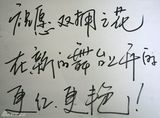 祝愿双拥之花
在新的舞台上开的
更红、更艳！